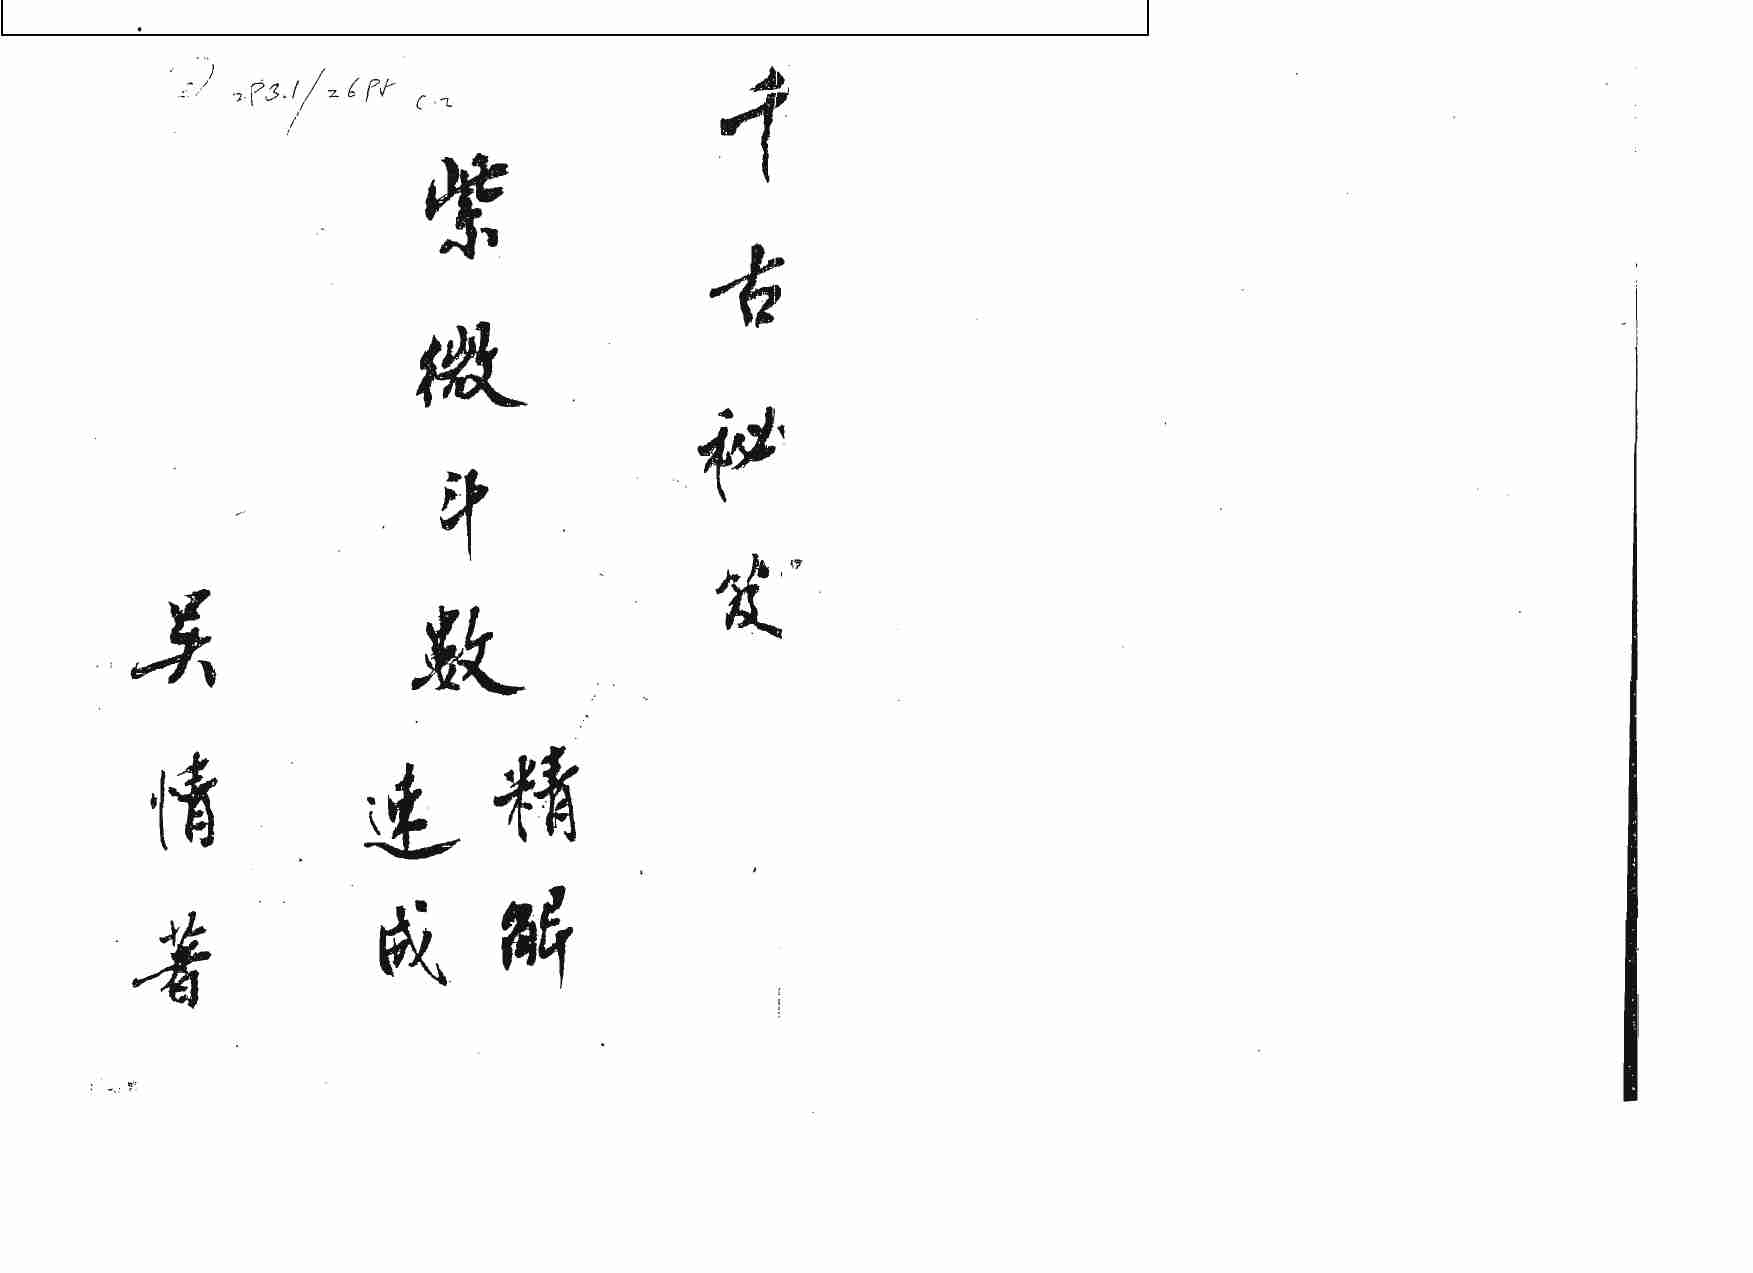 千古秘笈
紫微斗數
精解
速成
吳情著
C.2